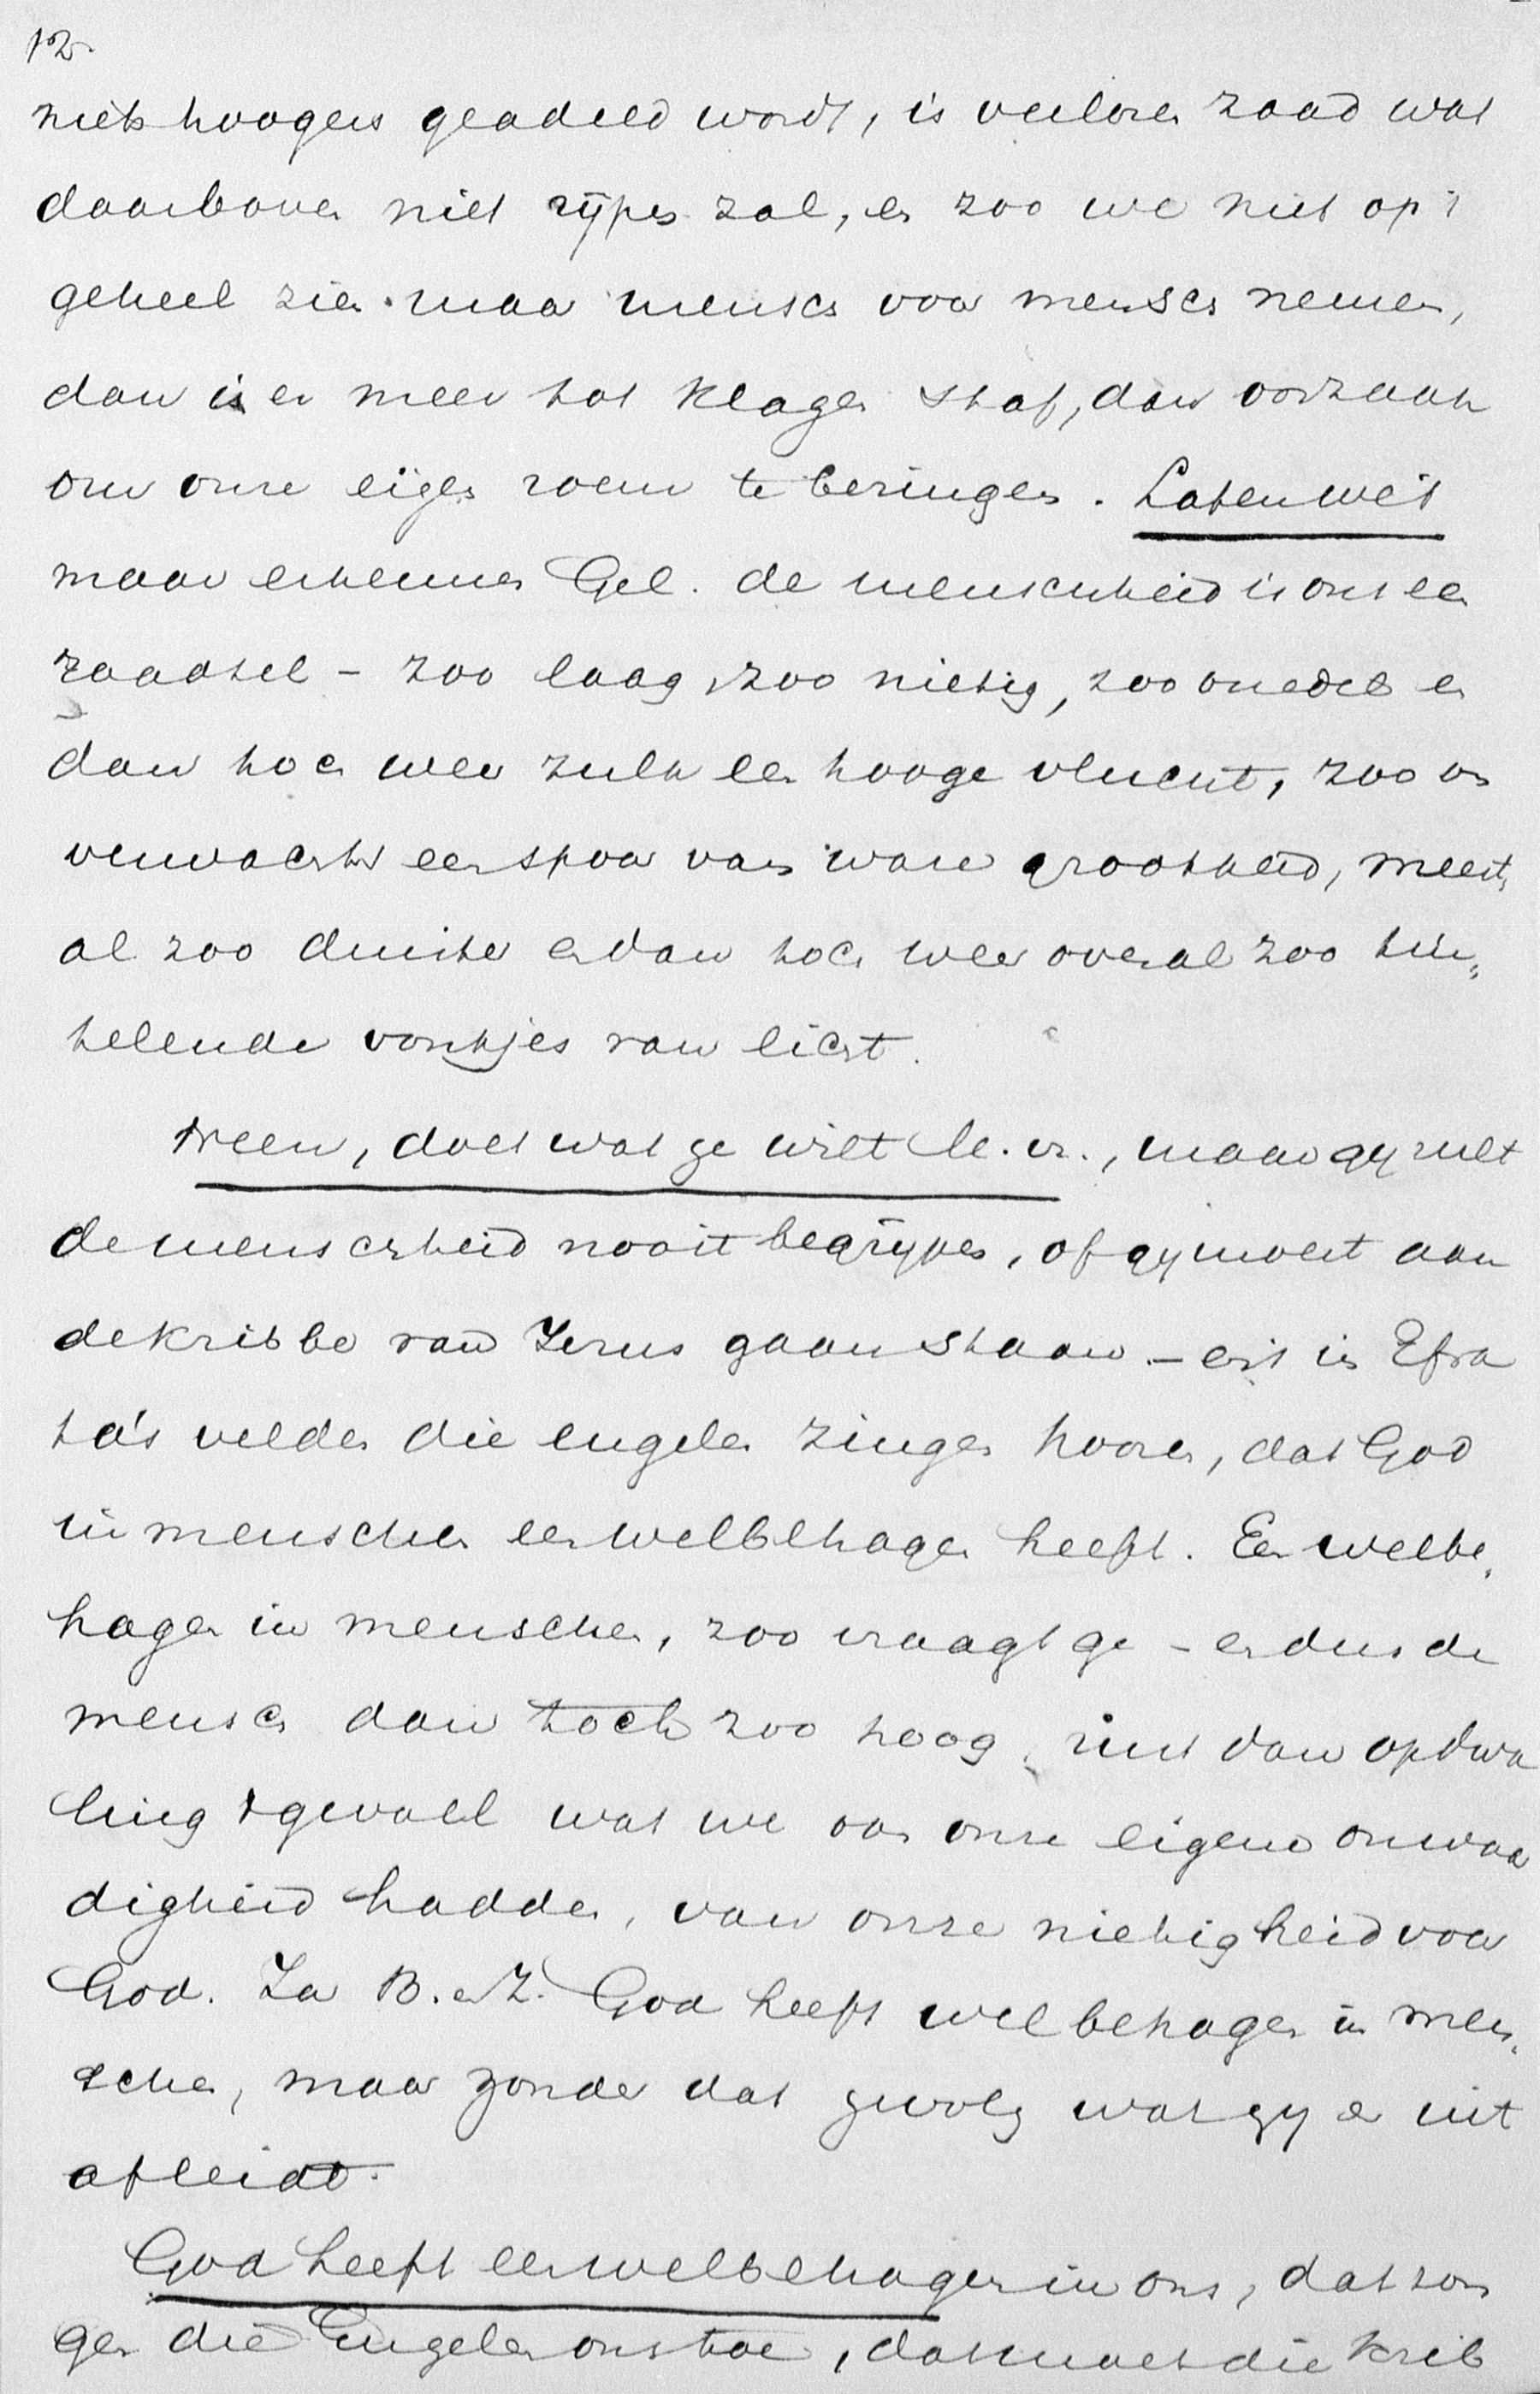 12.
niets hoogers geadeld wordt, is verloren zaad wat
daarboven niet rijpen zal, en zoo we niet op 't
geheel zien maar mensch voor mensch nemen,
dan is er meer tot klagen stof, dan oorzaak
om onze eigen roem te bezingen. Laten we 't
maar erkennen Gel. de menschheid is ons een
raadsel - zoo laag, zoo nietig, zoo onedel en
dan toch weer zulk een hooge vlucht, zoo on
verwacht een spoor van ware grootheid, meest,
al zoo duister en dan toch weer overal zoo tin„
telende vonkjes van licht.
Neen, doet wat ge wilt M. Br., maar gij zult
de menschheid nooit begrijpen, of gij moet aan
de kribbe van Jezus gaan staan - en 't in Efra
ta's velden die engelen zingen hooren, dat God
in menschen een welbehagen heeft. Een welbe„
hagen in menschen, zoo vraagt ge - en dus de
mensch dan toch zoo hoog, rust dan op dwa
ling 't gevoel wat we van onze eigene onwaar
digheid hadden, van onze nietigheid voor
God. Ja B. en Z. God heeft welbehagen in men„
schen, maar zonder dat gevolg wat gij er uit
afleidt.
God heeft een welbehagen in ons, dat zon
gen die Engelen ons toe, dat moet die krib